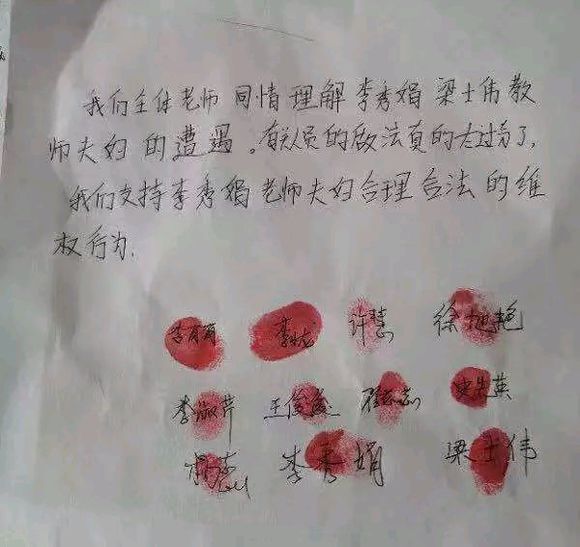 我们全体老师同情理解李秀娟梁士伟教
师夫妇的遭遇。有关人员的做法真的太过分了,
我们支持李秀娟老师夫妇合理合法的维
权行为.
许慧 徐旭艳
李淑芹 王俊鑫
李秀娟 梁士伟